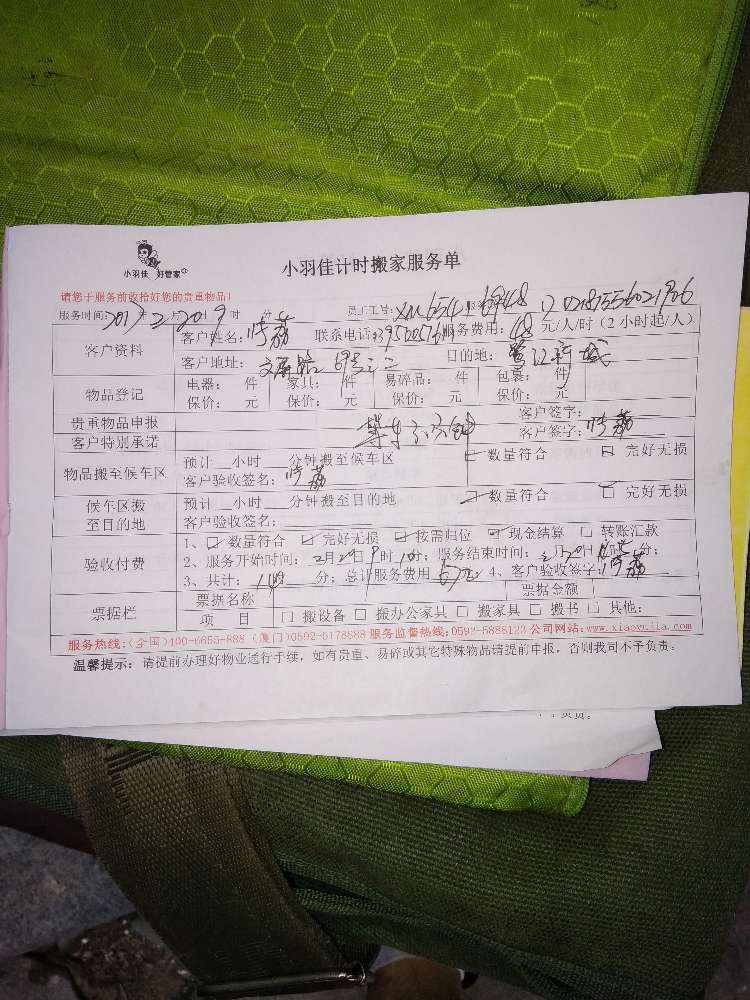 小羽佳 好管家
小羽佳计时搬家服务单
请您于服务前收拾好您的贵重物品!
服务时间: 2017年2月20日9时 分 员工工号:
客户资料 客户姓名: 联系电话: 服务费用: 48元/人/时(2小时起/人)
客户地址: 目的地:
物品登记 电器: 件 家具: 件 易碎品: 件 包裹: 件
保价: 元 保价: 元 保价: 元 保价: 元
贵重物品申报 客户签字:
客户特别承诺 客户签字:
物品搬至候车区 预计__小时__分钟搬至候车区 数量符合 完好无损
客户验收签名:
候车区搬至目的地 预计__小时__分钟搬至目的地 数量符合 完好无损
客户验收签名:
验收付费 1、 数量符合 完好无损 按需归位 现金结算 转账汇款
2、服务开始时间: 2月20日9时 分; 服务结束时间: 2月20日 时 分;
3、共计: 时 分; 总计服务费用 元; 4、客户验收签字:
票据栏 票据名称 票据金额
项 目 □ 搬设备 □ 搬办公家具 □ 搬家具 □ 搬书 □ 其他:
服务热线:(全国)400-6655-888 (厦门)0592-5178888 服务监督热线:0592-5888123 公司网站:www.xiaoyujia.com
温馨提示: 请提前办理好物业通行手续, 如有贵重、易碎或其它特殊物品请提前申报, 否则我司不予负责;